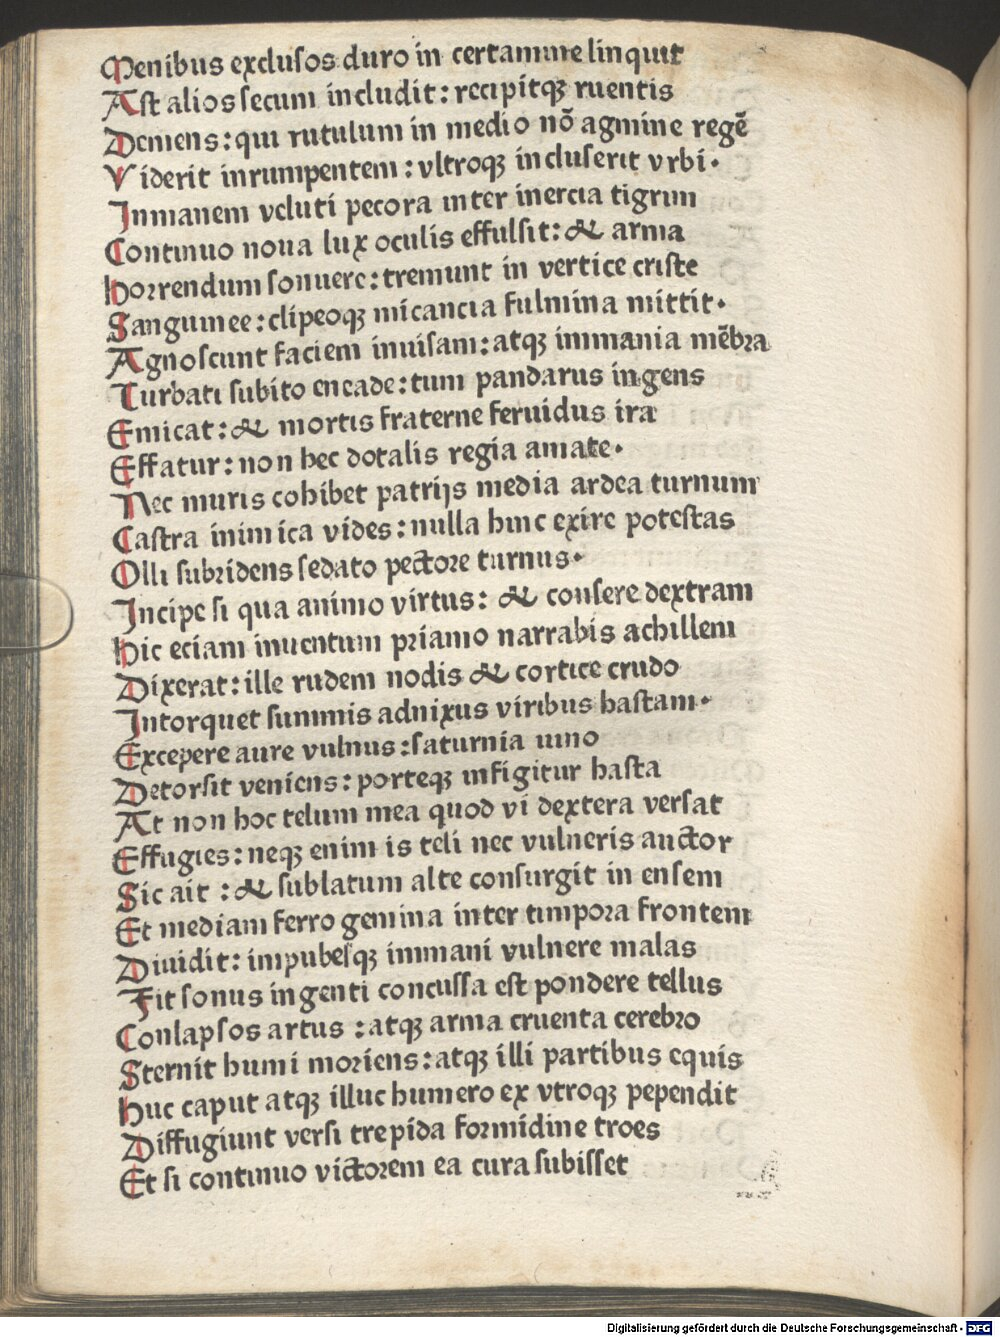 Menibus exclusos duro in certamine linquit
Ast alios secum includit: recipitqꝫ ruentis
Demens: qui rutulum in medio nō agmine regē
Viderit inrumpentem: vltroqꝫ incluserit vrbi.
Inmanem veluti pecora inter inercia tigrim
Continuo noua lux oculis effulsit: & arma
horrendum sonuere: tremunt in vertice criste
Sanguinee: clipeoqꝫ micancia fulmina mittit.
Agnoscunt faciem inuisam: atqꝫ inmania mēbra
Turbati subito eneade: tum pandarus ingens
Emicat: & mortis fraterne feruidus ira
Effatur: non hec dotalis regia amate.
Nec muris cohibet patrijs media ardea turnum
Castra inimica vides: nulla hinc exire potestas
Olli subridens sedato pectore turnus.
Incipe si qua animo virtus: & consere dextram
hic eciam inuentum priamo narrabis achillem
Dixerat: ille rudem nodis & cortice crudo
Intorquet summis adnixus viribus hastam.
Excepere aure vulnus: saturnia iuno
Detorsit veniens: porteqꝫ infigitur hasta
At non hoc telum mea quod vi dextera versat
Effugies: neqꝫ enim is teli nec vulneris auctor
Sic ait : & sublatum alte consurgit in ensem
Et mediam ferro gemina inter timpora frontem
Diuidit: impubesqꝫ inmani vulnere malas
Fit sonus ingenti concussa est pondere tellus
Conlapsos artus : atqꝫ arma cruenta cerebro
Sternit humi moriens: atqꝫ illi partibus equis
huc caput atqꝫ illuc humero ex vtroqꝫ pependit
Diffugiunt versi trepida formidine troes
Et si continuo victorem ea cura subisset
Digitalisierung gefördert durch die Deutsche Forschungsgemeinschaft - DFG